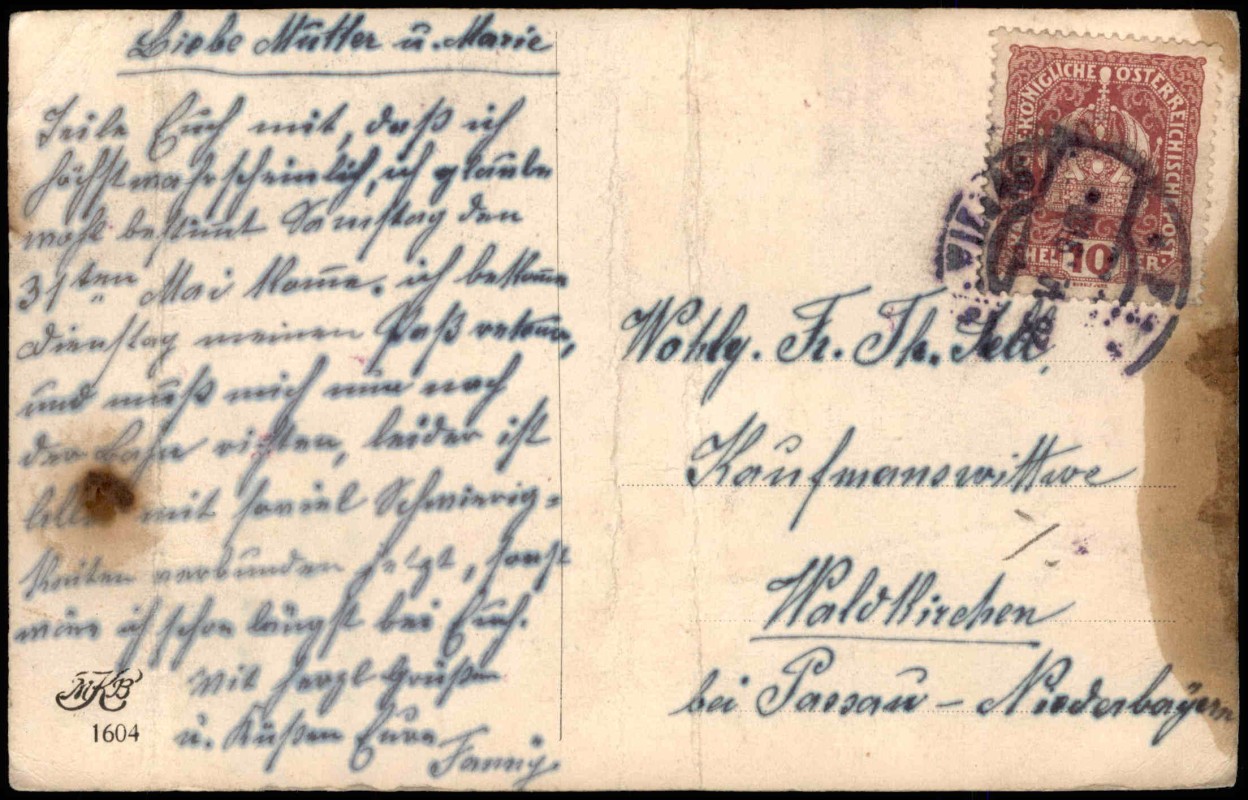 Liebe Mutter u. Marie
Teile Euch mit, daß ich
höchstwahrscheinlich, ich glaube
wohl bestimt Samstag den
31ten Mai kome. ich bekome
Dienstag meinen Paß retour,
und muß mich nur nach
der Bahn richten, leider ist
mit soviel Schwierig=
keiten verbunden jetzt, sonst
wäre ich schon längst bei Euch.
Mit herzl Grüßen
u. Küßen Eure
Fanny
MKB
1604
KÖNIGLICHE ÖSTERREICHISCHE POST
HELLER
10
Wohlg. Fr. Th. Sell,
Kaufmanswittwe
Waldkirchen
bei Passau - Niederbayern